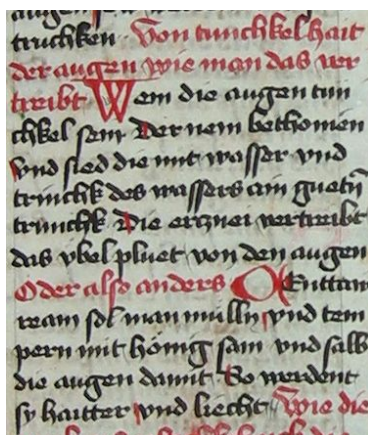 truchken Von tunchkelhait
der augen wie man das ver
treibt Wem die augen tun
chkel sein Der nem bethonien
vnd sied die mit wasser vnd
trinchk des wassers ain guetn̄
trunchk Die ercznei vertreibt
das vbel pluet von den augen
Oder also anders Centtau
ream sol man mülln vnd tem
pern mit hönig sam vnd salb
die augen damit So werdent
sy haitter vnd liecht Wie die